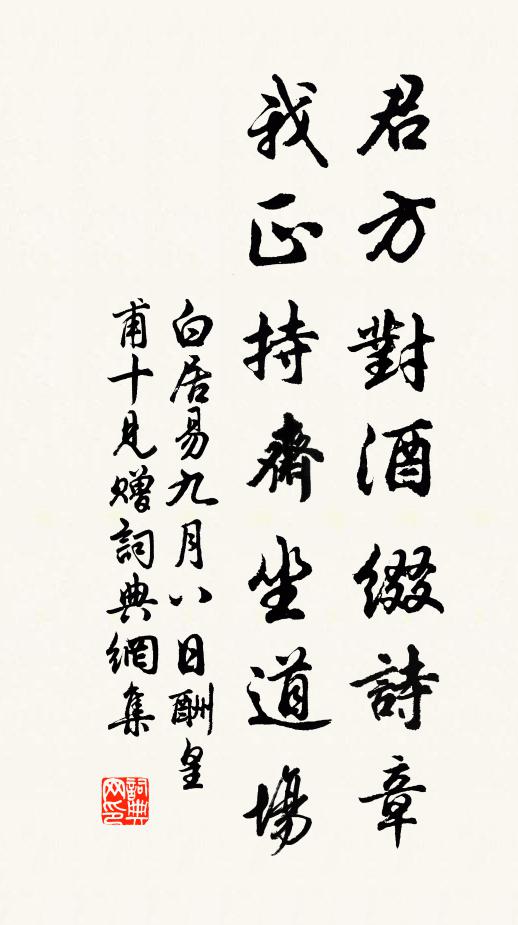 君方對酒綴詩章
我正持齋坐道場
白居易九月八日酬皇
甫十見贈詞典網集
詞典
网印